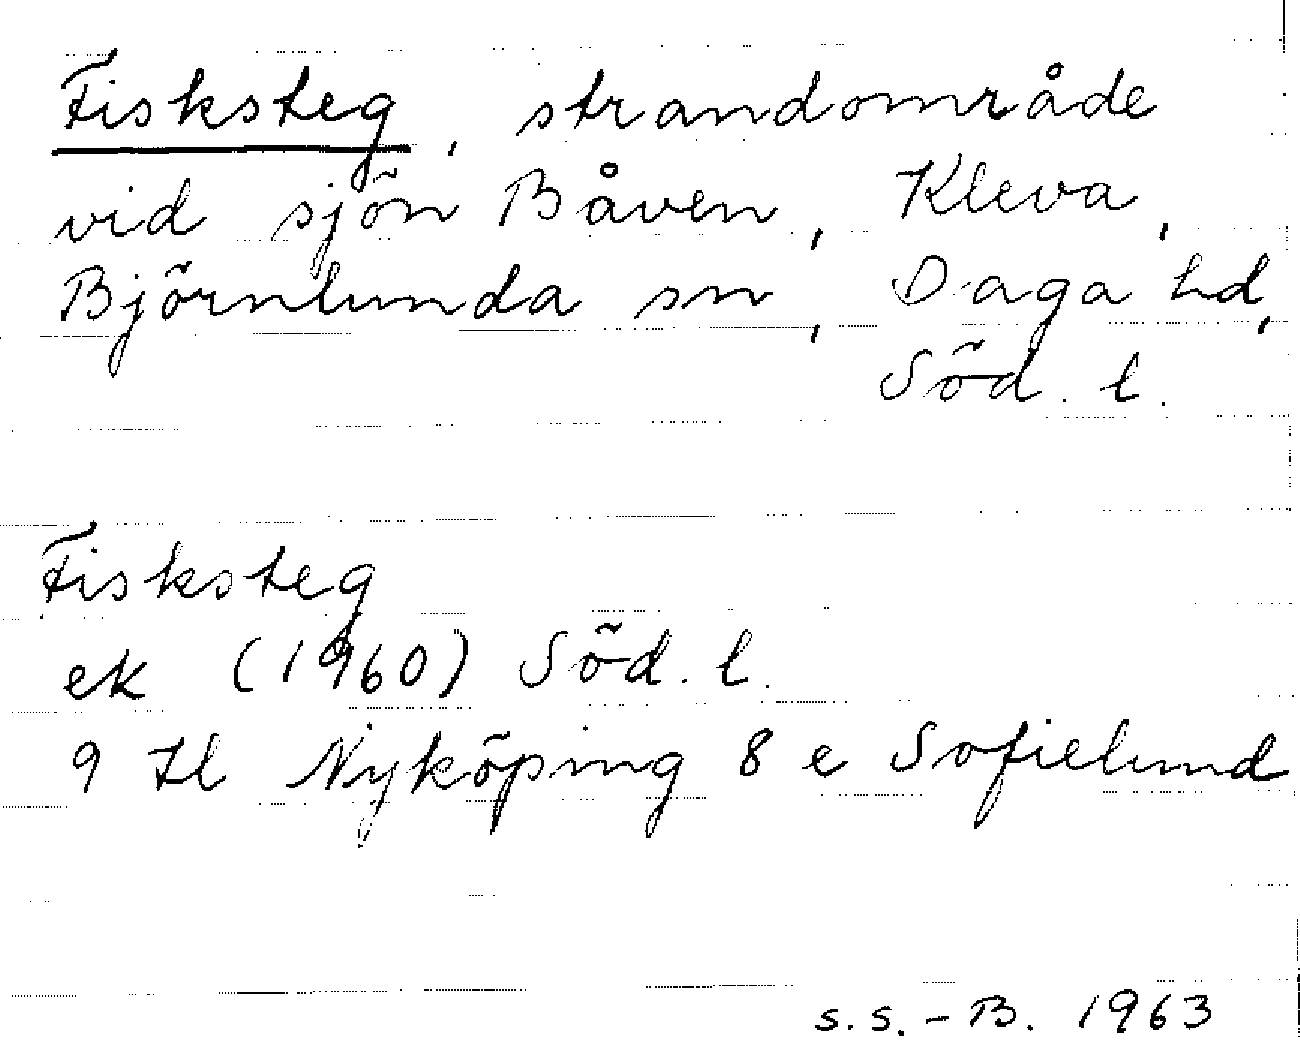 Fisksteg, strandområde
vid sjön Båven, Kleva,
Björnlunda sn, Daga hd,
Söd. l.
Fisksteg
ek (1960) Söd. l.
9 H l Nyköping 8 e Sofielund
s.s.-B. 1963